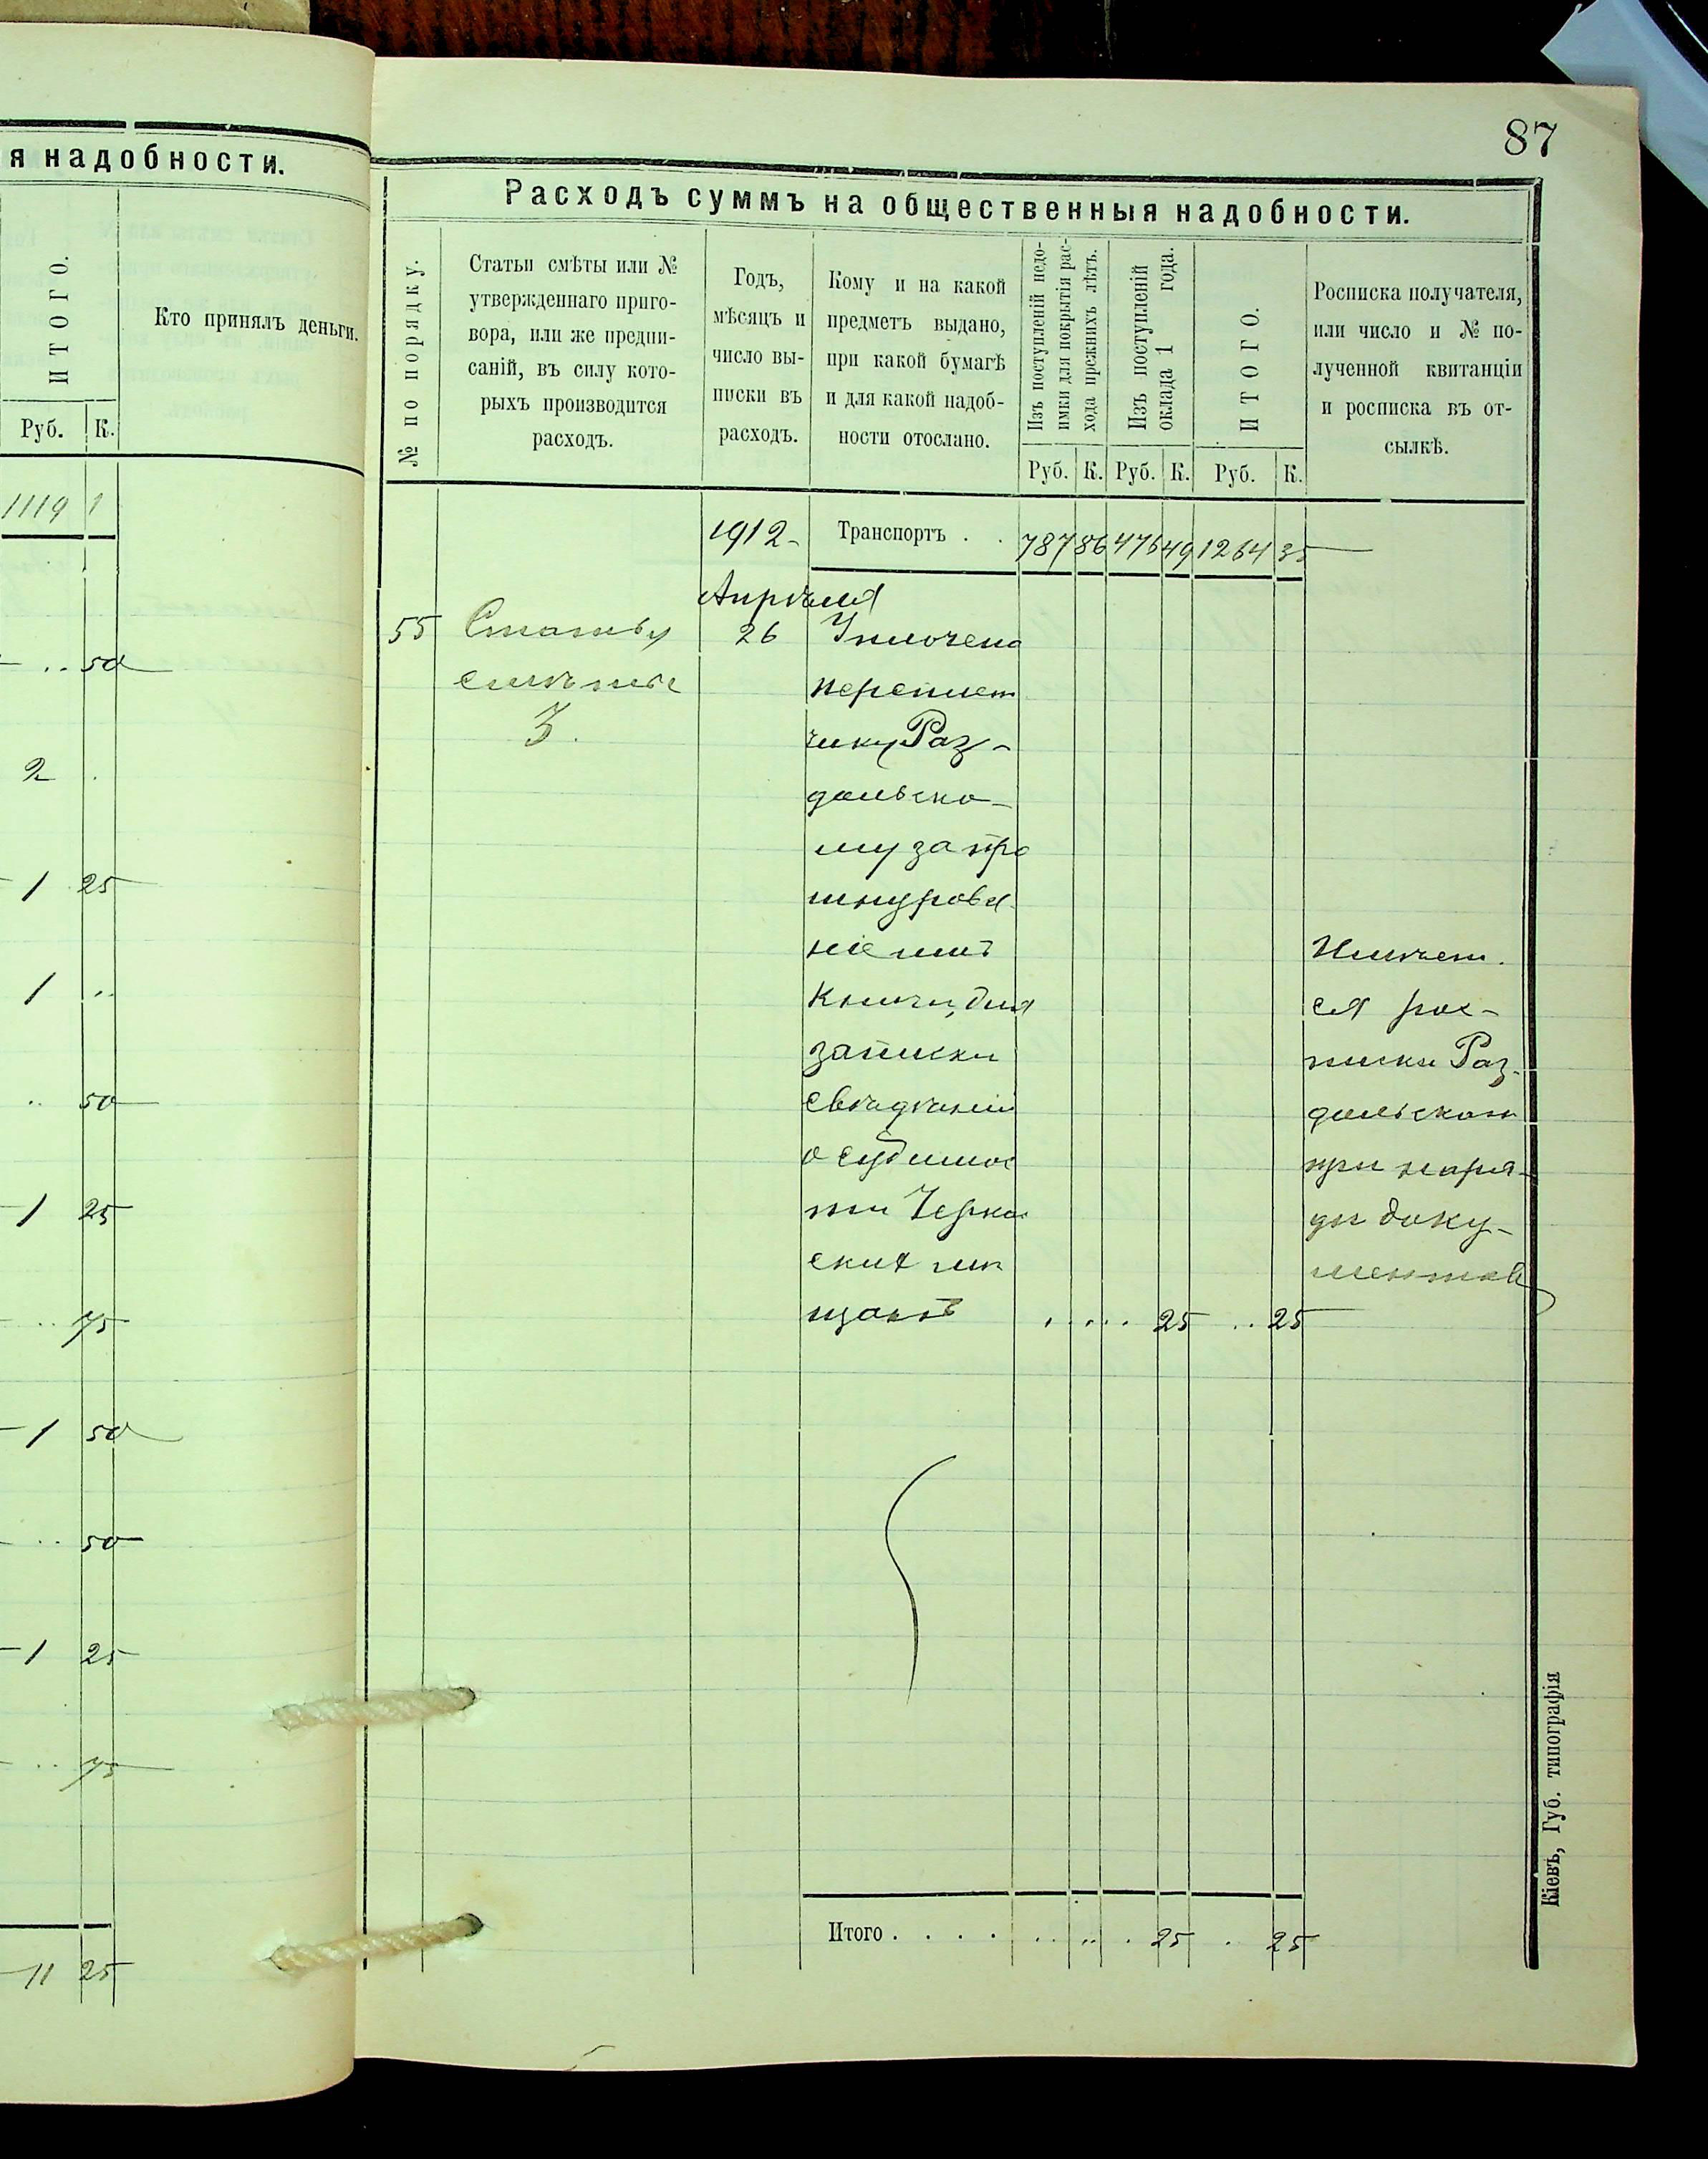 я надобности.
ИТОГО.
Кто принялъ деньги.
Руб. К.
1119 1
.. 50
2 .
1 25
1 ..
.. 50
1 25
.. 75
1 50
.. 50
1 25
.. 75
11 25
87
Расходъ суммъ на общественныя надобности.
№ по порядку.
Статьи смѣты или №
утвержденнаго приго-
вора, или же предпи-
саній, въ силу кото-
рыхъ производится
расходъ.
Годъ,
мѣсяцъ и
число вы-
писки въ
расходъ.
Кому и на какой
предметъ выдано,
при какой бумагѣ
и для какой надоб-
ности отослано.
Изъ поступленій недо-
имки для покрытія рас-
хода прежнихъ лѣтъ.
Изъ поступленій
оклада 1 года.
ИТОГО.
Росписка получателя,
или число и № по-
лученной квитанціи
и росписка въ от-
сылкѣ.
Руб. К. Руб. К. Руб. К.
1912 - Транспортъ . . 787 86 476 49 1264 35
Апрѣля
55 Статья 26 Уплочено
смѣты переплет
3. чику Раз-
дольско-
му за про
шнурова
ніе
книги, для
записки
свѣдѣній
о судимос
ти Черкас
скихъ мѣ
щанъ . . . . 25 .. 25
Имѣет.
ся рос-
писка Раз-
дольскаго
при наря-
дѣ доку-
ментовъ
Итого . . . . .. .. . 25 . 25
Кіевъ, Губ. типографія